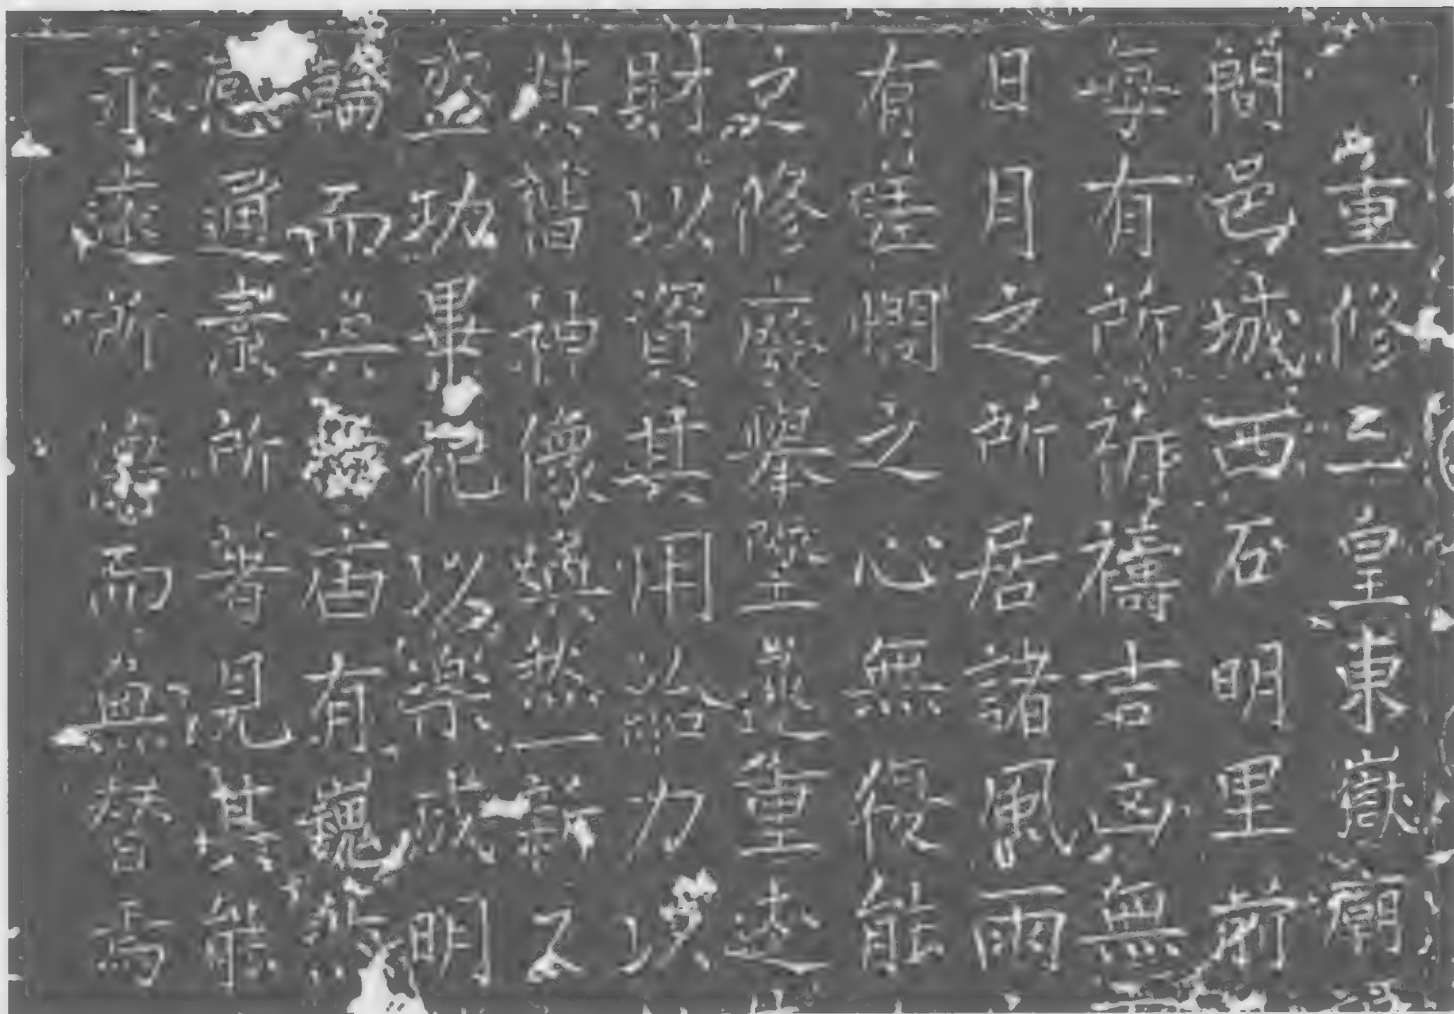 重修三皇東嶽廟
間邑城西石明里前
每有所祚禱吉凶無
日月之所居諸風雨
有差憫之心無役能
之修廢舉墜是重述
財以資其用治力以
其皆神像煥然一新又
盔功畢祀以崇成明
輪而具 古有巍然
感通素所著見其能
永遠所 而無替焉